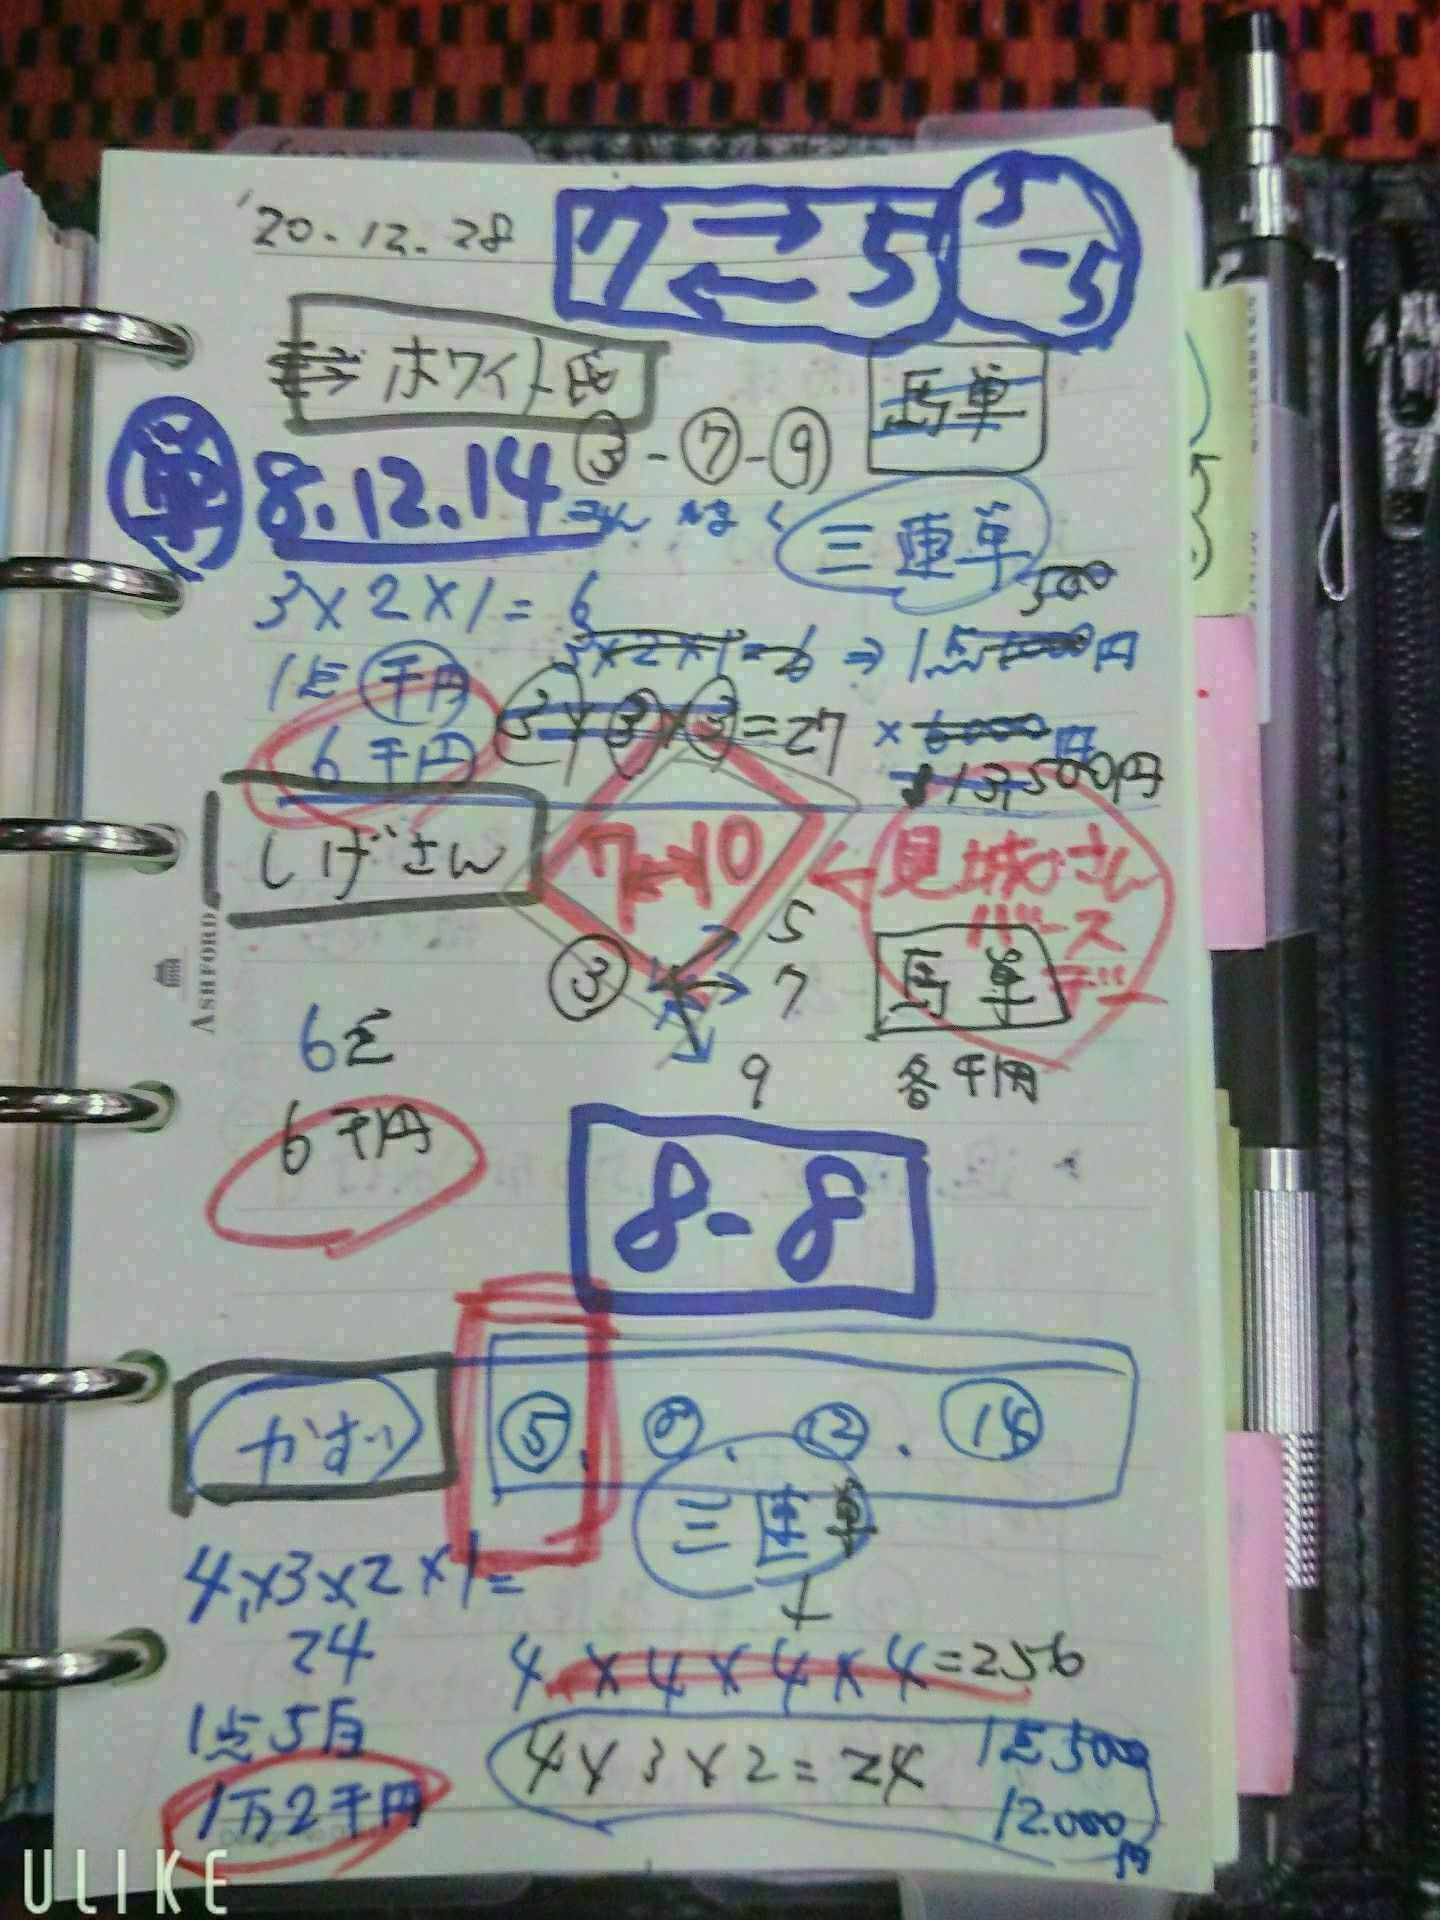 '20.12.28
7 → 5
←
5
-5
ホワイト氏
馬単
8.12.14
③-⑦-⑨
三連単
3×2×1=6
500
3×2×1=6 ⇒ 1点1000円
1点千円
③×③×③=27
×6000円
6千円
13,500円
しげさん
7↔10
← 見城さん
バースデー
③
5
7
9
馬単
各千円
6点
6千円
ASHFORD
8-8
⑤.⑧.⑫.⑭
三連単
4×3×2×1=
24
4×4×4×4=256
1点5百
4×3×2=24
1点500
1万2千円
12.000円
ULIKE